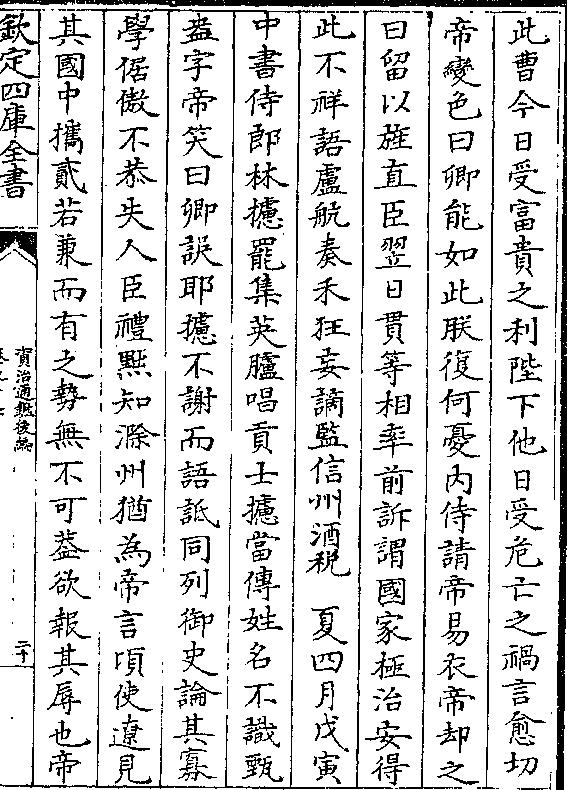 此曹今日受富貴之利陛下他日受危亡之禍言愈切
帝變色曰卿能如此朕復何憂內侍請帝易衣帝却之
曰留以旌直臣翌日貫等相率前訴謂國家極治安得
此不祥語盧航奏禾狂妄謫監信州酒稅　夏四月戊寅
中書侍郎林攄罷集英臚唱貢士攄當傳姓名不識甄
盎字帝笑曰卿誤耶攄不謝而語詆同列御史論其寡
學倨傲不恭失人臣禮黜知滁州猶為帝言頃使遼見
其國中攜貳若兼而有之勢無不可葢欲報其辱也帝
欽定四庫全書
資治通鑑後編
二十